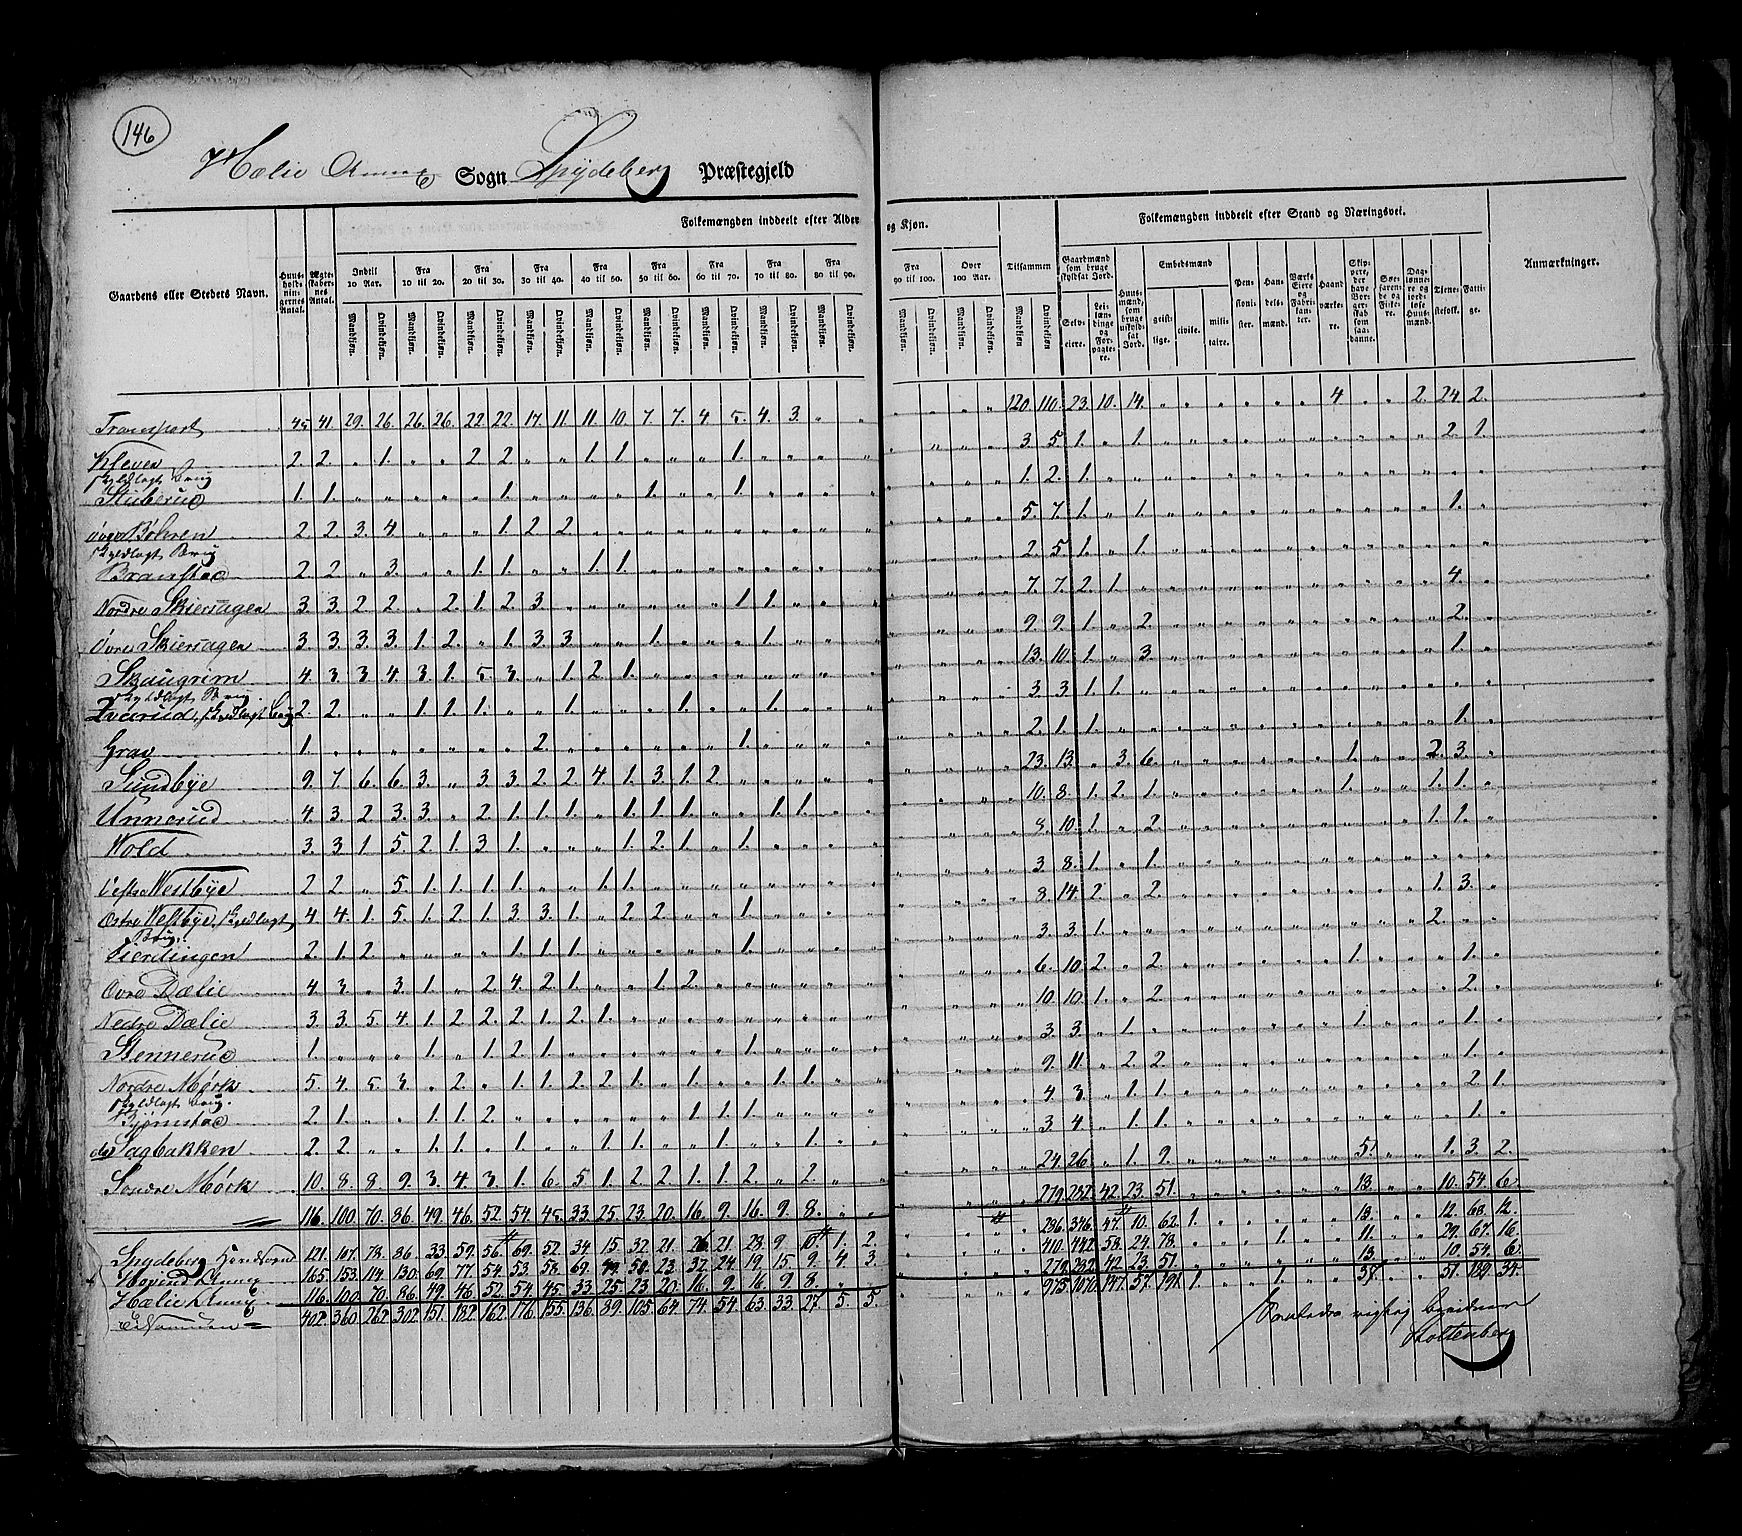 146
Hælie Annex Sogn Spydeberg Præstegjeld
Folkemængden inddeelt efter Alder og Kjøn.
Folkemængden inddeelt efter Stand og Næringsvei.
Gaardens eller Stedets Navn.
Huus-holdnin-gernes Antal.
Ægte-skaber-nes Antal.
Indtil 10 Aar.
Fra 10 til 20.
Fra 20 til 30.
Fra 30 til 40.
Fra 40 til 50.
Fra 50 til 60.
Fra 60 til 70.
Fra 70 til 80.
Fra 80 til 90.
Fra 90 til 100.
Over 100 Aar.
Tilsammen
Mandkjøn. Qvindekjøn.
Gaardmænd som bruge skyldsat Jord.
Selv-eiere.
Lei-læn-dinge og For-pagte-re.
Huus-mænd, som bruge uskyld-sat Jord.
Embedsmænd
geist-lige.
civile.
mili-taire.
Pen-sioni-ster.
Han-dels-mænd.
Værks Eiere og Fabri-kan-ter.
Haand værke-re.
Skip-pere, der have Bor-ger-skab som saa-danne.
Søe-farende og Fiske-re.
Dag-lønne-re og jord-løse Huus-mænd.
Tjene-stefolk.
Fatti-ge.
Anmærkninger.
Transport 45 41. 29. 26. 26. 26. 22. 22. 17. 11. 11. 10. 7. 7. 4. 5. 4. 3. 120. 110. 23. 10. 14. 4 2. 24. 2.
Kleven 2. 2. 1. 2 2. 1. 1. 1. 3. 5. 1. 1. 2. 1.
skyldlagt Brug
Stuberud 1. 1. 1. 1. 1. 1. 2. 1.
øvre Bøhren 2. 2. 3. 4. 1. 2. 2. 5. 7. 1. 1. 1.
skyldlagt Brug
Branstad 2. 2. 3. 1. 1. 1. 1. 2. 5. 1. 1.
Nordre Skiersagen 3. 3. 2. 2. 2. 1. 2. 3. 1. 1. 7. 7. 2. 1. 4.
Øvre Skiersagen 3. 3. 3. 3. 1. 2. 1. 3. 3. 1. 1. 9. 9. 1. 2. 2.
Skaugrim 4. 3. 3. 4. 3. 1. 5. 3. 1. 2. 1. 13. 10. 1. 3. 1.
skyldlagt Brug.
skyldlagt Brug 2. 2. 1. 1. 1. 1. 1. 1. 3. 3. 1. 1.
Grav 1. 2. 1. 2. 1. 1. 1.
Sundbye 9. 7. 6. 6. 3. 3. 3. 2. 2. 4. 1. 3. 1. 2. 23. 13. 3. 6. 1. 2. 3.
Unnerud 4. 3. 2. 3. 3. 2. 1. 1. 1. 1. 1. 1. 1. 1. 10. 8. 1. 2. 1. 1. 1. 1.
Wold 3. 3. 1. 5. 2. 1. 3. 1. 1. 2. 1. 1. 9. 10. 1. 2. 1. 1.
Vestre Westbye 2. 2. 5. 1. 1. 1. 1. 1. 1. 3. 8. 1. 1.
Østre Westbye, skyldlagt 4. 4. 1. 5. 1. 2. 1. 3. 3. 1. 2. 2. 1. 8. 14. 2. 2. 1. 3.
Brug
2. 1. 2. 1. 1. 1. 1. 3. 3. 1. 2.
Øvre Dælie 4. 3. 3. 1. 2. 4. 2. 1. 1. 2. 6. 10. 2. 2. 1. 1.
Nedre Dælie 3. 3. 5. 4. 1. 2. 2. 2. 1. 2. 1. 10. 10. 1. 2. 2.
Stennerud 1. 1. 1. 2. 1. 1. 3. 3. 1. 1. 1.
Nordre Mørk 5. 4. 5. 3. 2. 1. 1. 2. 2. 1. 1. 1. 1. 9. 11. 2. 2. 1.
skyldlagt Brug.
Bjørnstad 2. 1. 1. 1. 2. 1. 1. 1. 4. 3. 1. 1. 2. 1.
do Sagbakken 2. 2. 1. 1. 1. 1. 1. 1. 1. 3. 4. 1. 1. 1.
Søndre Mørk 10. 8. 8. 9. 3. 4. 3. 1. 6. 5. 1. 2. 2. 1. 1. 2. 2. 24. 26. 1. 9. 5. 1. 3. 2.
116. 100. 70. 86. 49. 46. 52. 54. 45. 33. 25. 23. 20. 16. 9. 16. 9. 8. 279. 282. 42. 23. 51. 13. 10. 54. 6.
Spydeberg Hovedsogn 121. 107. 78. 86. 33. 59. 56. 69. 52. 34. 15. 32. 21. 26. 21. 28. 9. 10. 1. 2. 286. 346. 47. 10. 62. 1. 13. 12. 68. 12.
Hovind Annex 165. 153. 114. 130. 69. 77. 54. 53. 58. 69. 49. 50. 23. 32. 24. 19. 15. 9. 4. 3. 410. 442. 58. 24. 78. 1. 11. 29. 67. 16.
Hælie Annex 116. 100. 70. 86. 49. 46. 52. 54. 45. 33. 25. 23. 20. 16. 9. 16. 9. 8. 279. 282. 42. 23. 51. 13. 10. 54. 6.
402. 360. 262. 302. 151. 182. 162. 176. 155. 136. 89. 105. 64. 74. 54. 63. 33. 27. 5. 5. 975. 1070. 147. 57. 191. 1. 1. 37. 51. 189. 34.
rigtig
Stoltenberg